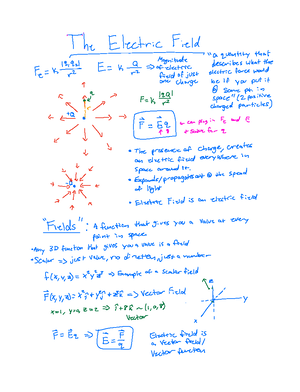 The Electric Field
F_e = k |q₁q₂| / r²
E = k Q / r² ⇒ Magnitude of electric field of just one charge
"a quantity that describes what the electric force would be if you put it @ some pt. in space" (2 positive charged particles)
+Q
F = k |2Q| / r²
F⃗ = E⃗q
→ can plug in F_e and E
→ Solve for q
• The presence of charge, creates an electric field everywhere in space around it.
• Expands/propagates out @ the speed of light
• Electric Field is an electric field
"Fields": A function that gives you a value at every point in space
• Any 3D function that gives you a value is a field
• Scalar => just value, no direction, just a number
f(x,y,z) = x²y²z² → Example of a scalar field
F⃗(x,y,z) = => Vector Field
x=1, y=0, z=2 => ~ (1,0,8)
Vector
x
y
z
F⃗ = E⃗q => E⃗ = F⃗/q
Electric field is a vector field/
Vector function